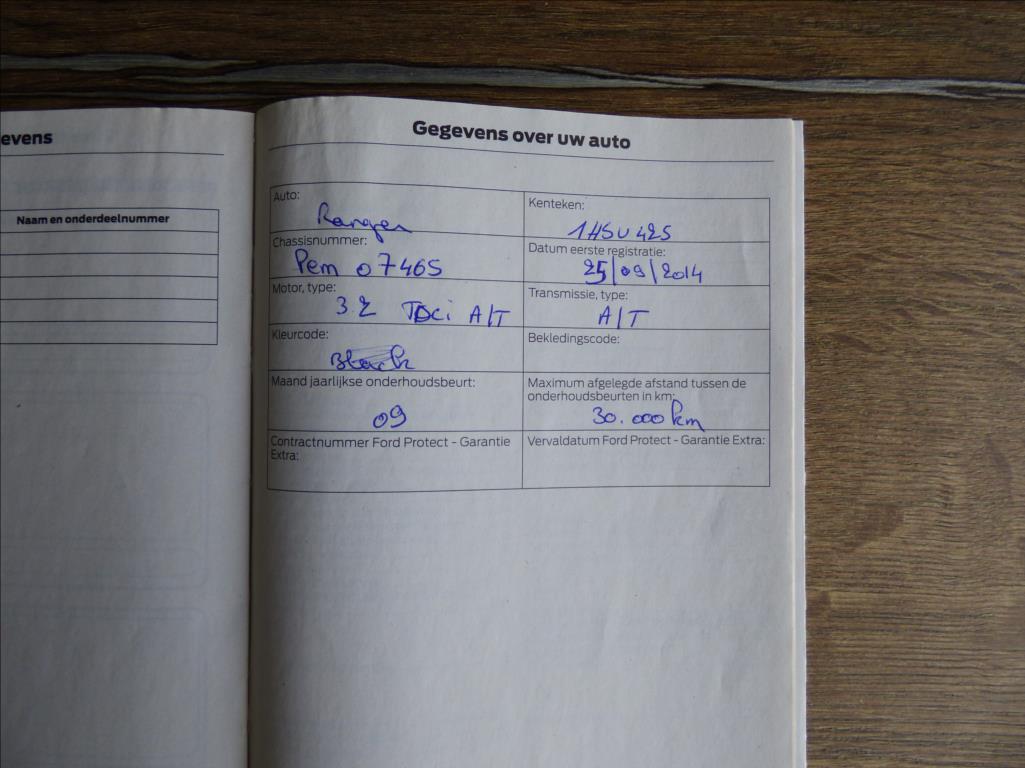 evens
Naam en onderdeelnummer
Gegevens over uw auto
Auto:
Ranger
Kenteken:
1HSU425
Chassisnummer:
Pem 07465
Datum eerste registratie:
25/09/2014
Motor, type:
3.2 TDCi A/T
Transmissie, type:
A/T
Kleurcode:
Black
Bekledingscode:
Maand jaarlijkse onderhoudsbeurt:
09
Maximum afgelegde afstand tussen de
onderhoudsbeurten in km:
30.000 km
Contractnummer Ford Protect - Garantie
Extra:
Vervaldatum Ford Protect - Garantie Extra: